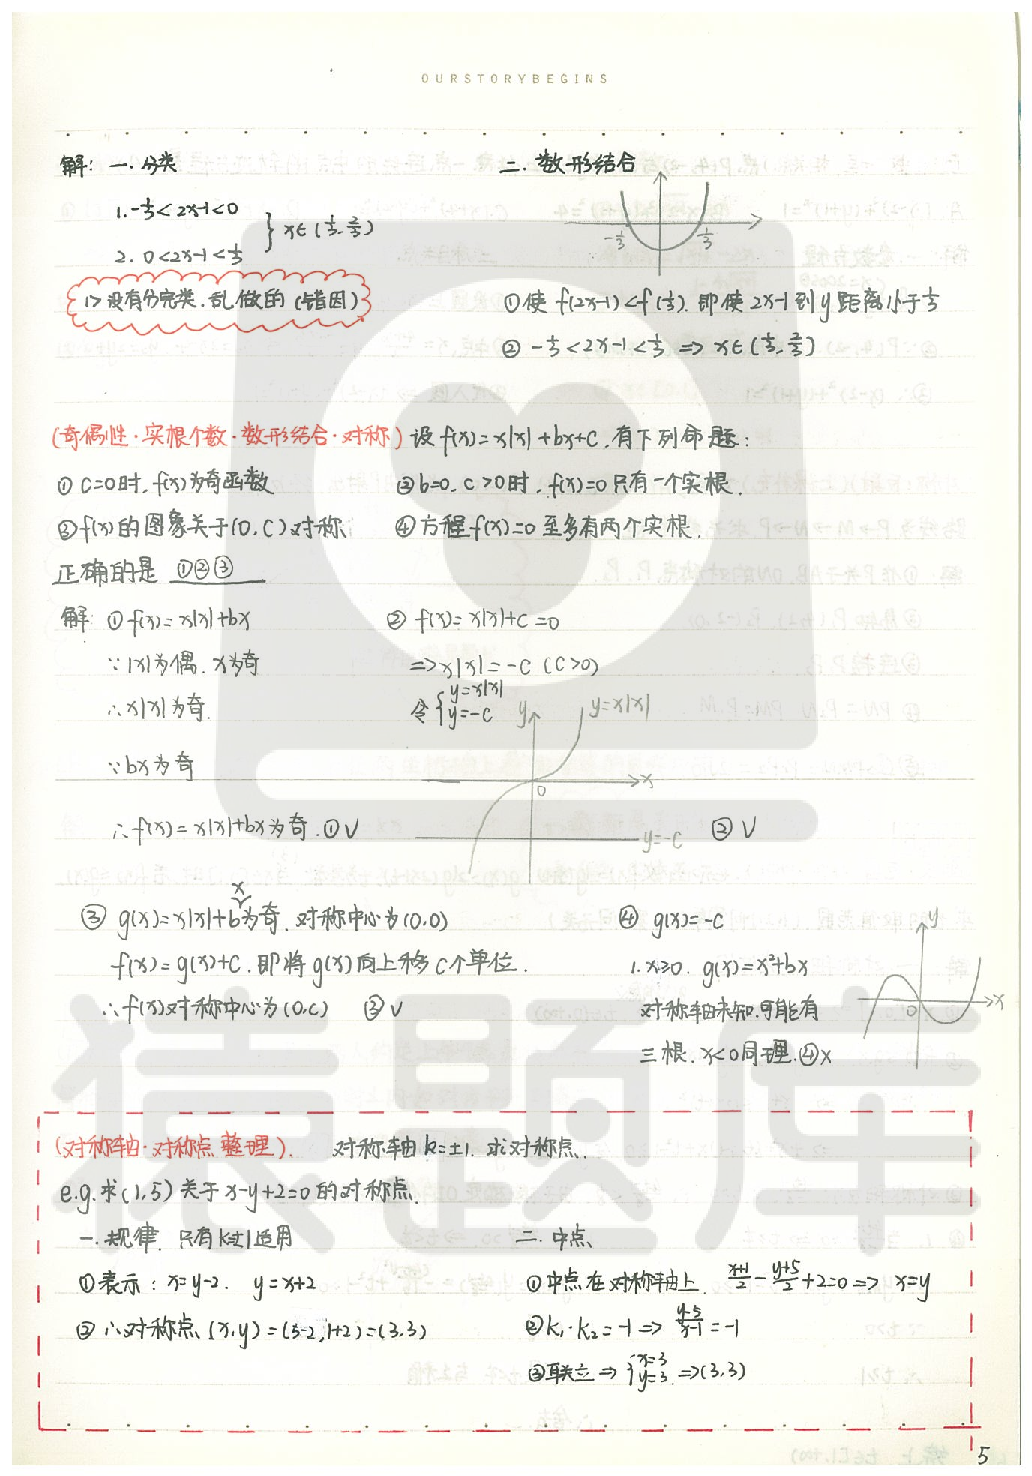 OURSTORYBEGINS
解: 一. 分类
1. -1/3<2x-1<0
2. 0<2x-1<1/3
} x∈(1/3, 2/3)
1> 没有分完类. 乱做的 (错因)
二. 数形结合
-1/3 1/3
①使 f(2x-1)<f(1/3). 即使 2x-1 到 y 距离小于 1/3
② -1/3<2x-1<1/3 => x∈(1/3, 2/3)
(奇偶性·实根个数·数形结合·对称) 设 f(x)=x|x|+bx+C, 有下列命题:
① C=0时, f(x)为奇函数 ③ b=0, C>0时, f(x)=0只有一个实根.
②f(x)的图象关于(0,C)对称 ④方程f(x)=0至多有两个实根.
正确的是 ①②③
解: ①f(x)=x|x|+bx
∵|x|为偶. x为奇
∴x|x|为奇.
∵bx为奇
∴f(x)=x|x|+bx为奇. ①√
② f(x)=x|x|+C=0
=>x|x|=-C (C>0)
令{y=x|x|
y=-C
y y=x|x|
0 x
y=-C ②√
③ g(x)=x|x|+bx为奇. 对称中心为(0,0)
f(x)=g(x)+C. 即将g(x)向上移C个单位.
∴f(x)对称中心为(0,C) ③√
④ g(x)=-C
1. x≥0. g(x)=x²+bx
对称轴未知. 可能有
三根. x<0同理. ④×
y
0 x
(对称轴·对称点 整理). 对称轴 k=±1. 求对称点.
e.g. 求(1,5)关于x-y+2=0的对称点.
一. 规律. 只有k±1适用
①表示: x=y-2. y=x+2
②∴对称点(x,y)=(5-2,1+2)=(3,3)
二. 中点、
①中点在对称轴上. (x+1)/2-(y+5)/2+2=0=> x=y
②k₁·k₂=-1=> (y-5)/(x-1)=-1
③联立=> {x=3 y=3 =>(3,3)
猿题库
5